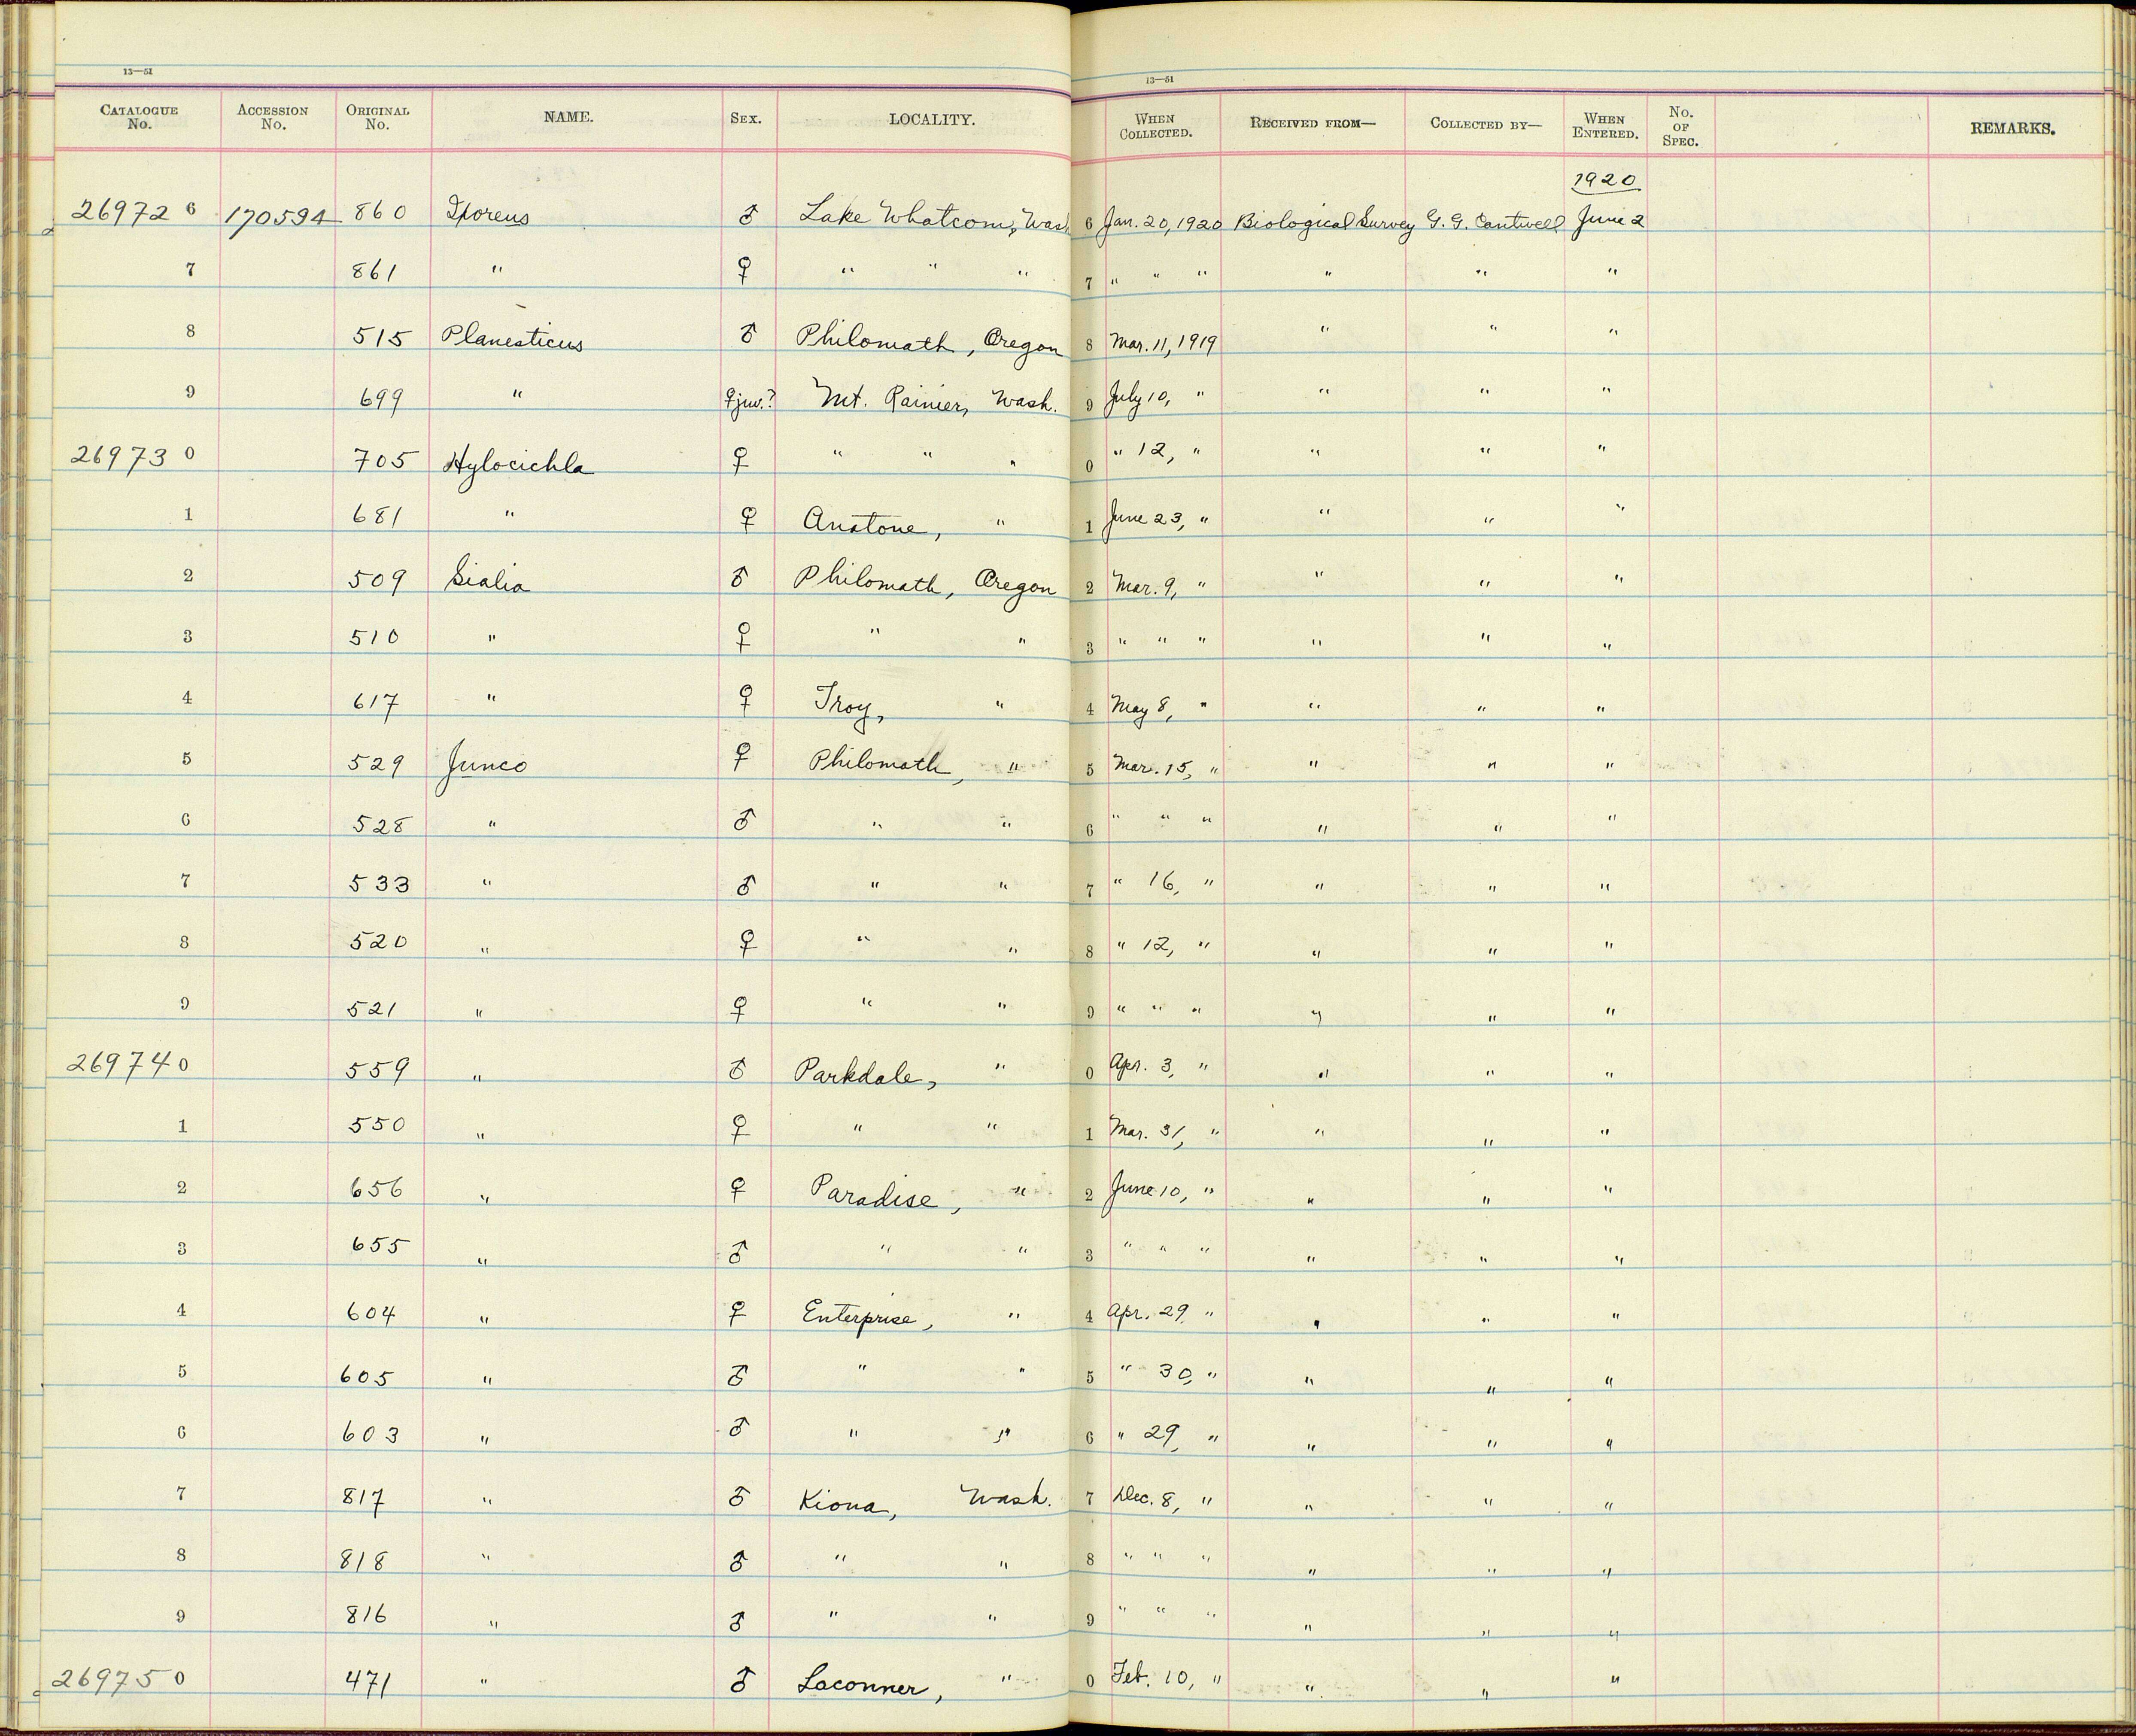 13—51 13—51
CATALOGUE No. ACCESSION No. ORIGINAL No. NAME. SEX. LOCALITY. WHEN COLLECTED. RECEIVED FROM— COLLECTED BY— WHEN ENTERED. No. OF SPEC. REMARKS.
1920
26972 6 170594 860 Ixoreus ♂ Lake Whatcom, Wash. 6 Jan. 20, 1920 Biological Survey G. G. Cantwell June 2
7 861 " ♀ " " " 7 " " " " " "
8 515 Planesticus ♂ Philomath, Oregon 8 Mar. 11, 1919 " " "
9 699 " ♀ juv.? Mt. Rainier, Wash. 9 July 10, " " " "
26973 0 705 Hylocichla ♀ " " " 0 " 12, " " " "
1 681 " ♀ Anatone, " 1 June 23, " " " "
2 509 Sialia ♂ Philomath, Oregon 2 Mar. 9, " " " "
3 510 " ♀ " " 3 " " " " " "
4 617 " ♀ Troy, " 4 May 8, " " " "
5 529 Junco ♀ Philomath, " 5 Mar. 15, " " " "
6 528 " ♂ " " 6 " " " " " "
7 533 " ♂ " " 7 " 16, " " " "
8 520 " ♀ " " 8 " 12, " " " "
9 521 " ♀ " " 9 " " " " " "
26974 0 559 " ♂ Parkdale, " 0 Apr. 3, " " " "
1 550 " ♀ " " 1 Mar. 31, " " " "
2 656 " ♀ Paradise, " 2 June 10, " " " "
3 655 " ♂ " " 3 " " " " " "
4 604 " ♀ Enterprise, " 4 Apr. 29 " " " "
5 605 " ♂ " " 5 " 30, " " " "
6 603 " ♂ " " 6 " 29, " " " "
7 817 " ♂ Kiona, Wash. 7 Dec. 8, " " " "
8 818 " ♂ " " 8 " " " " " "
9 816 " ♂ " " 9 " " " " " "
26975 0 471 " ♂ Laconner, " 0 Feb. 10, " " " "